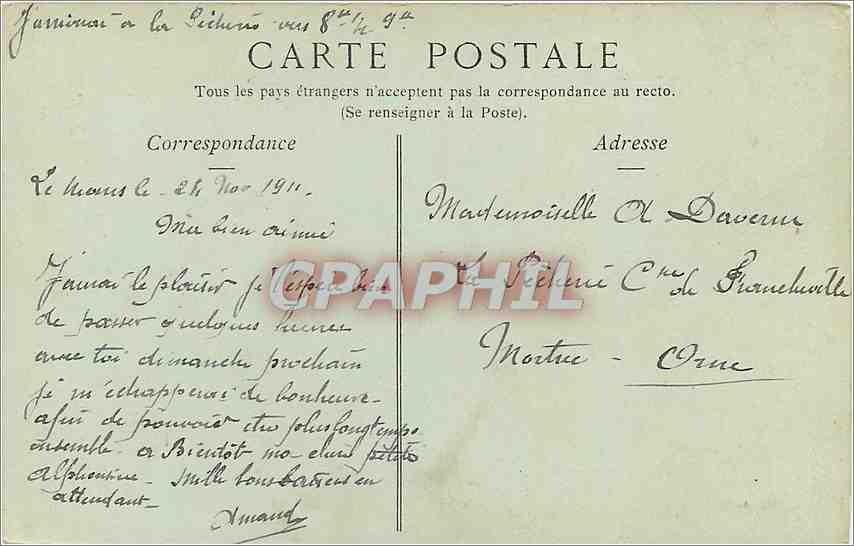 J'arriverai a la Picherie vers 8h 1/2 9h
CARTE POSTALE
Tous les pays étrangers n'acceptent pas la correspondance au recto.
(Se renseigner à la Poste).
Correspondance
Le Mans le 24 Nov 1911.
Ma bien aimée
J'aurai le plaisir je l'espère bien
de passer quelques heures
avec toi dimanche prochain
je m'échapperai de bonheure
afin de pouvoir être plus longtemps
ensemble. a Bientôt ma chère petite
Alphonsine. Mille bons baisers en
attendant
Amand
Adresse
Mademoiselle A
La Picherie Cne de Francheville
Mortrée - Orne
CPAPHIL